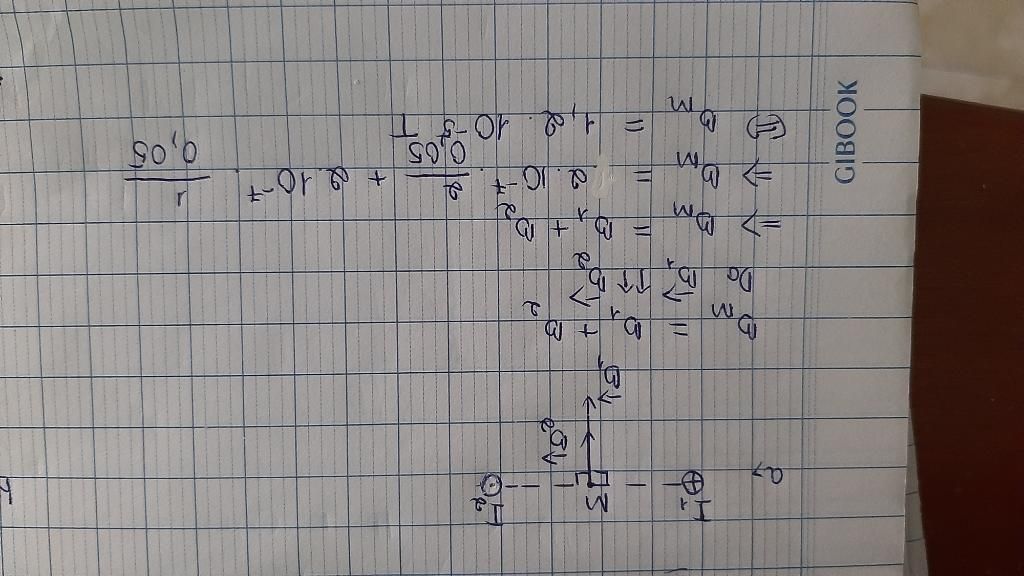 I₁ M I₂
a)
B⃗₂
B⃗₁
B_M = B₁ + B₂
Do B⃗₁ ↑↑ B⃗₂
=> B_M = B₁ + B₂
=> B_M = 2.10⁻⁷ . 2/0,05 + 2.10⁻⁷ . 1/0,05
B_M = 1,2.10⁻⁵ T
GIBOOK